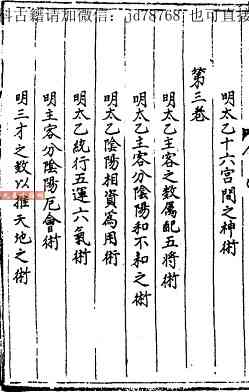 科古籍请加微信：jd78768，也可直接
明太乙十六宮間之神術
第三卷
明太乙主客之数属配五将術
明太乙主客分陰陽和不和之術
明太乙陰陽相資為用術
明太乙統行五運六氣術
明主客分陰陽厄會術
明三才之数以推天地之術